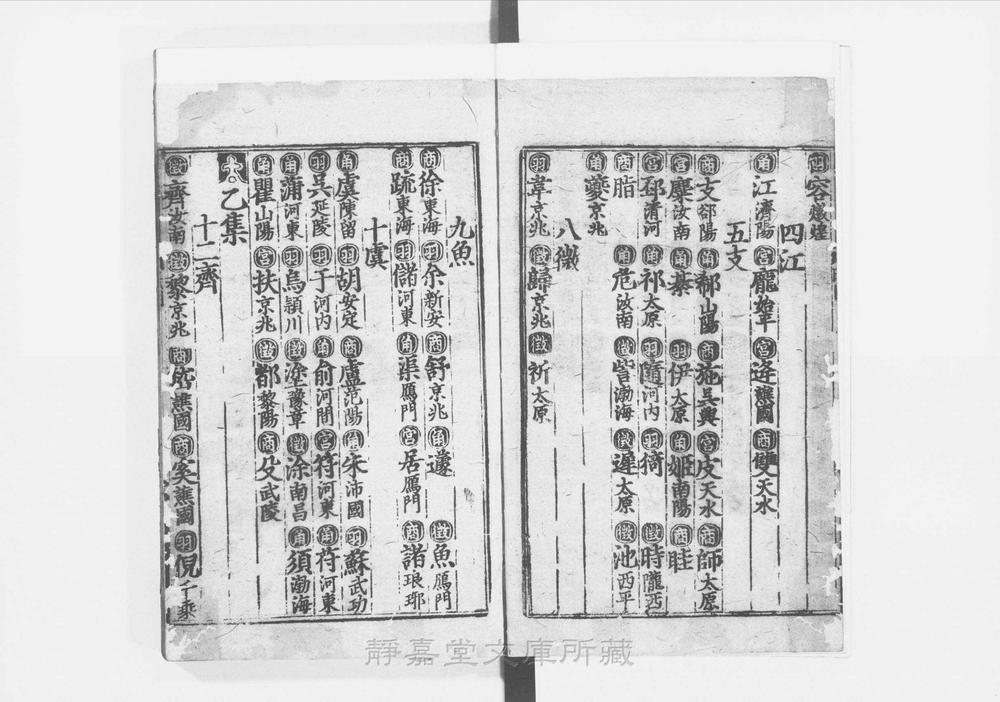 宮容燉煌
四江
角江濟陽宮龐始平宮逄譙國商雙天水
五支
商支郃陽角郗山陽商施吳興宮皮天水商師太原
宮麋汝南角綦羽伊太原角姬南陽商眭
宮邳清河角祁太原羽隨河内羽猗徵時隴西
商脂角危汝南徵訾渤海徵遲太原徵池西平
角夔京兆
八微
羽韋京兆徵歸京兆徵祈太原
九魚
商徐東海羽余新安商舒京兆角蘧徵魚鴈門
商疏東海羽儲河東角渠鴈門宮居鴈門商諸琅琊
十虞
角虞陳留羽胡安定商盧范陽角朱沛國羽蘇武功
羽吳延陵羽于河内角俞河間宮符河東角苻河東
角蒲河東羽烏潁川徵塗豫章徵涂南昌角須渤海
角瞿山陽宮扶京兆徵都黎陽商殳武陵
乙集
十二齊
徵齊汝南徵黎京兆商嵇譙國商奚譙國羽倪千乘
靜嘉堂文庫所藏